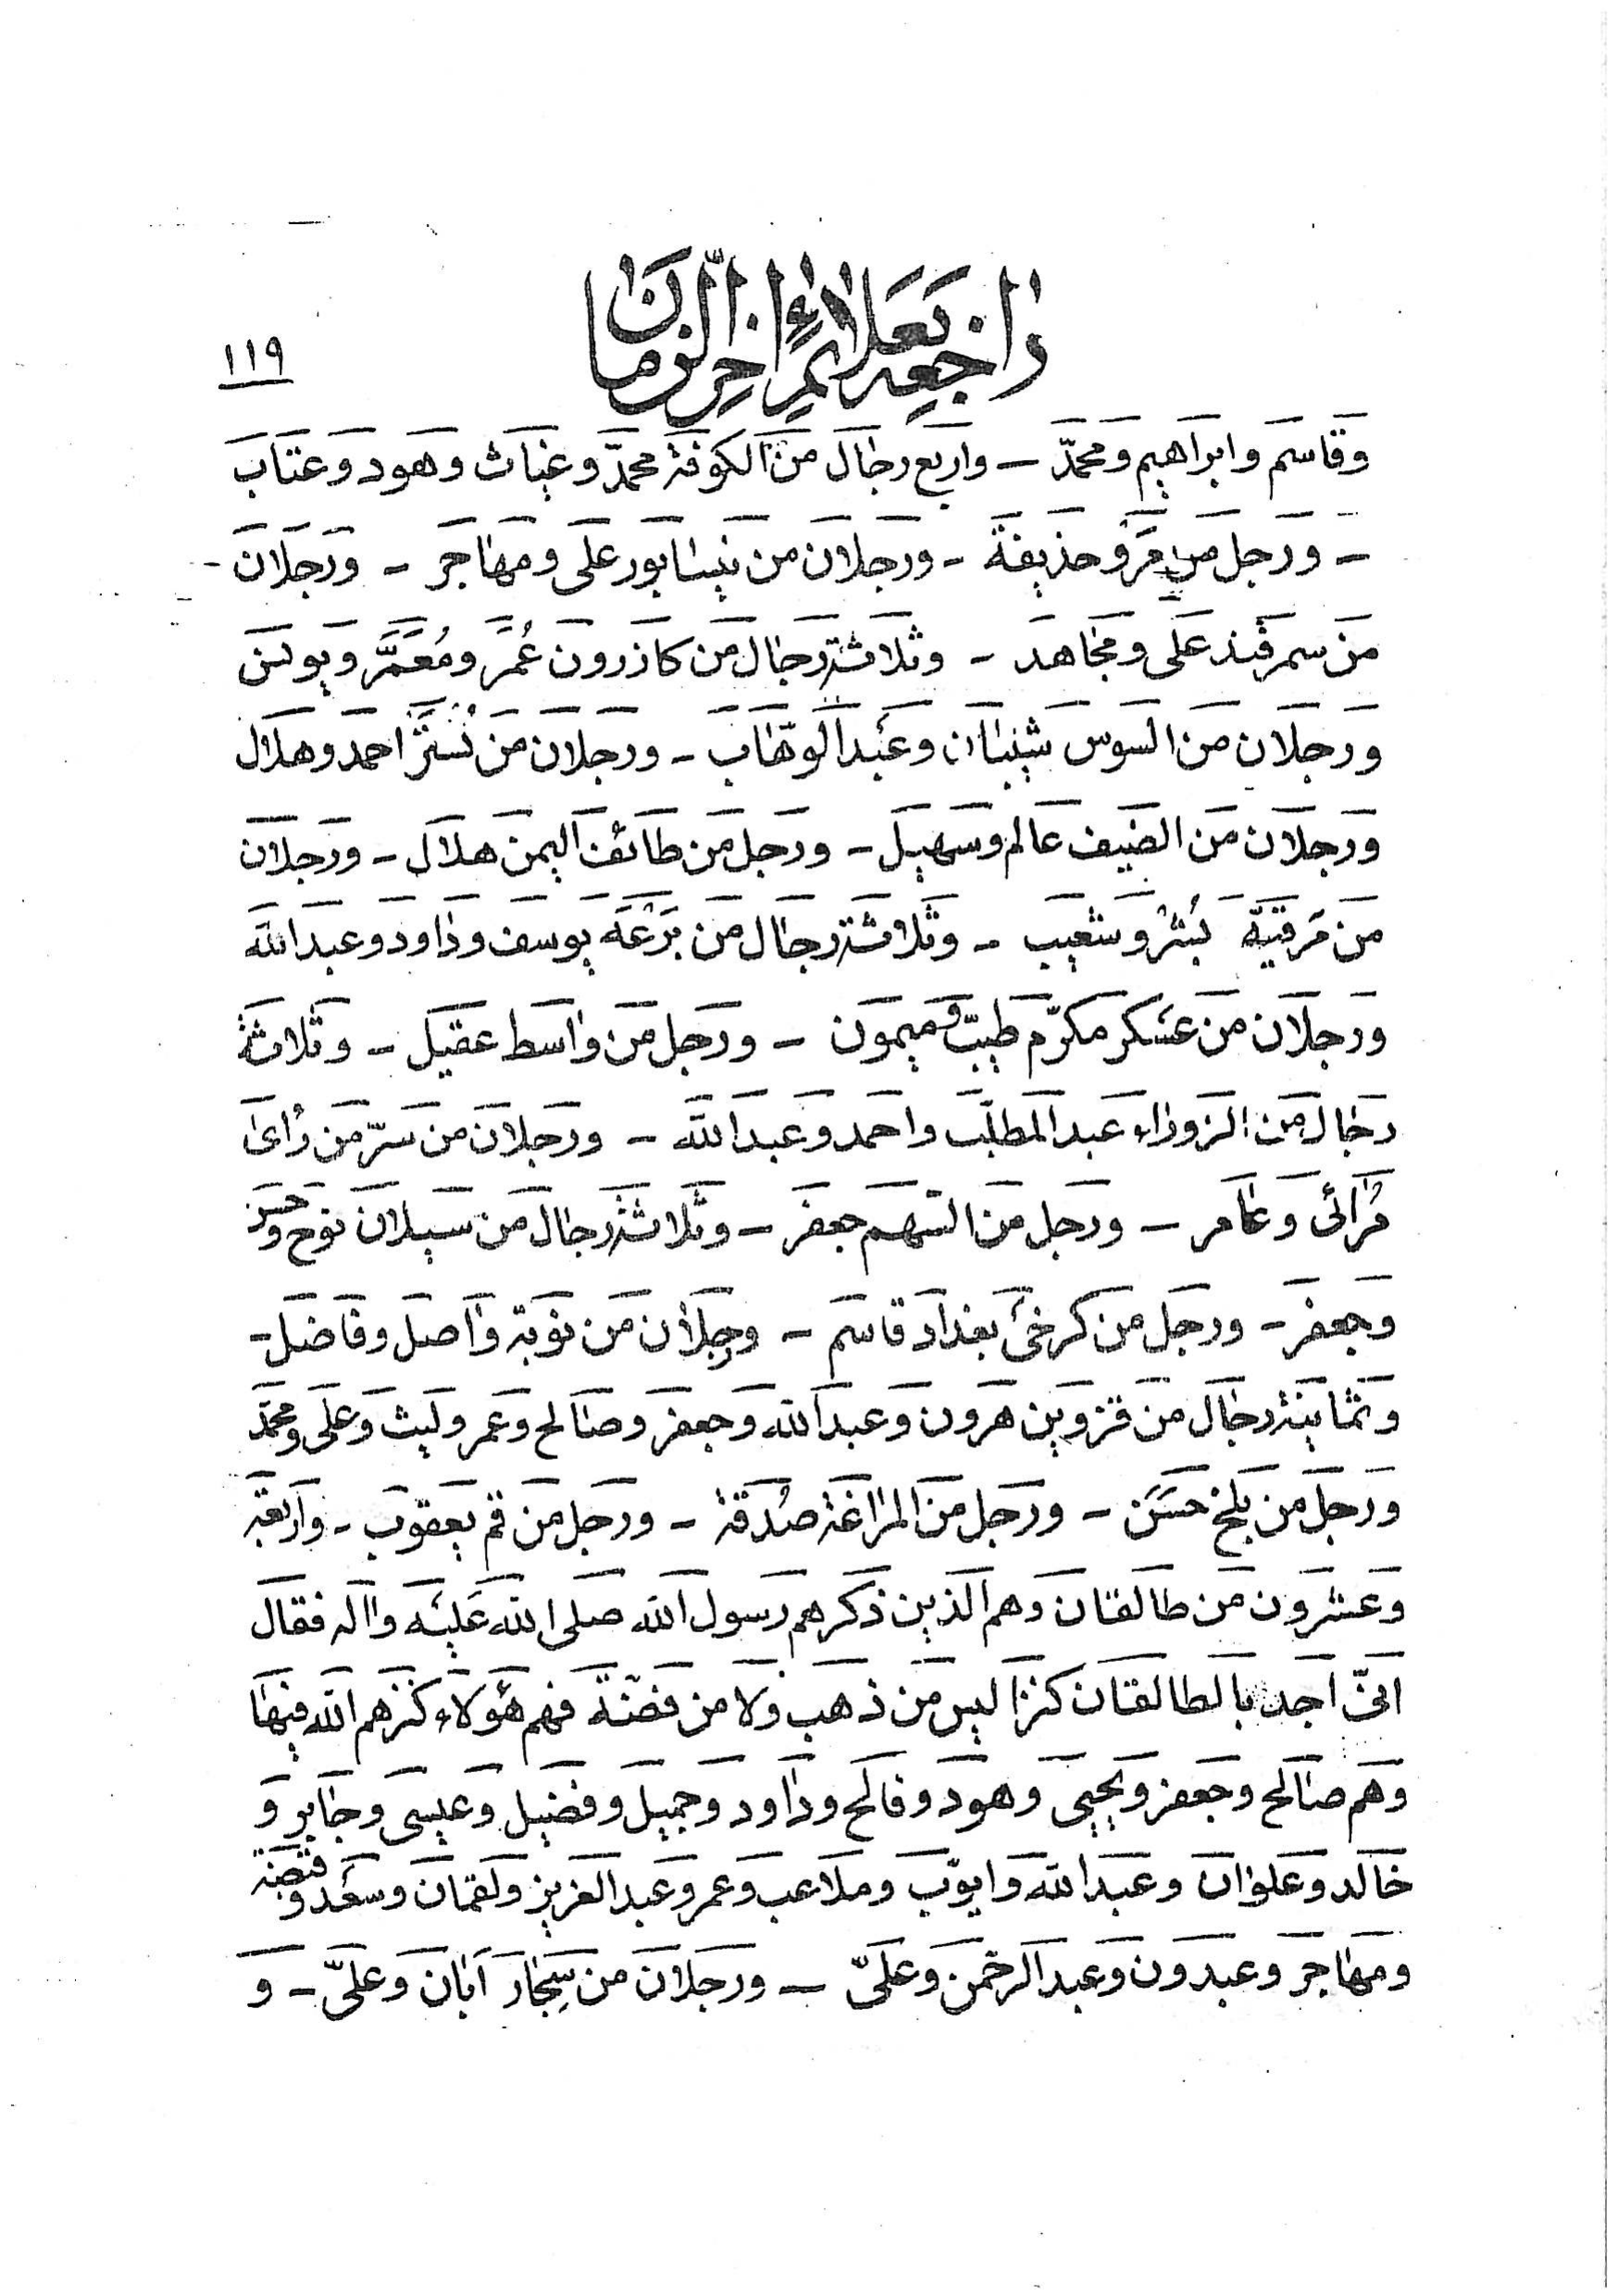 راجعه بعلائم اخر الزمان
١١٩
وقاسم وابراهيم ومحمّد – واربع رجال من الكوفة محمّد وغياث وهود وعتاب
– ورجل من مَرو حذيفة – ورجلان من نيسابور على ومهاجر – ورجلان –
من سمرقند على ومجاهد – وثلاثة رجال من كازرون عُمَر ومُعَمَّر ويونس
ورجلان من السوس شيبان وعبد الوهّاب – ورجلان من تُستَر احمد وهلال
ورجلان من الضيف عالم وسهيل – ورجل من طائف اليمن هلال – ورجلان
من مَرقيّه بُشْر وشعيب – وثلاثة رجال من بَرْعَة يوسف وداود وعبد الله
ورجلان من عسكر مكرّم طيّب وميمون – ورجل من واسط عقيل – وثلاثة
رجال من الزوراء عبد المطلّب واحمد وعبد الله – ورجلان من سرّ من رُاىٰ
مُرائى وعامر – ورجل من السّهم جعفر – وثلاثة رجال من سيلان نوح وحسن
وجعفر – ورجل من كرخىّ بغداد قاسم – ورجلان من نوبة واصل وفاضل –
وثمانية رجال من قزوين هرون وعبد الله وجعفر وصالح وعمر وليث وعلى ومحمّد
ورجل من بلخ حسن – ورجل من المراغة صدقة – ورجل من قم يعقوب – واربعة
وعشرون من طالقان وهم الذين ذكرهم رسول الله صلى الله عليه واله فقال
انىّ اجد بالطالقان كنزا ليس من ذهب ولا من فضّة فهم هؤلاء كنزهم الله فيها
وهم صالح وجعفر ويحيى وهود وفالح وداود وجميل وفضيل وعيسى وجابر و
خالد وعلوان وعبد الله وايّوب وملاعب وعمر وعبد العزيز ولقمان وسعد وقبضة
ومهاجر وعبدون وعبد الرحمن وعلىّ – ورجلان من سِنجار ابان وعلىّ – و